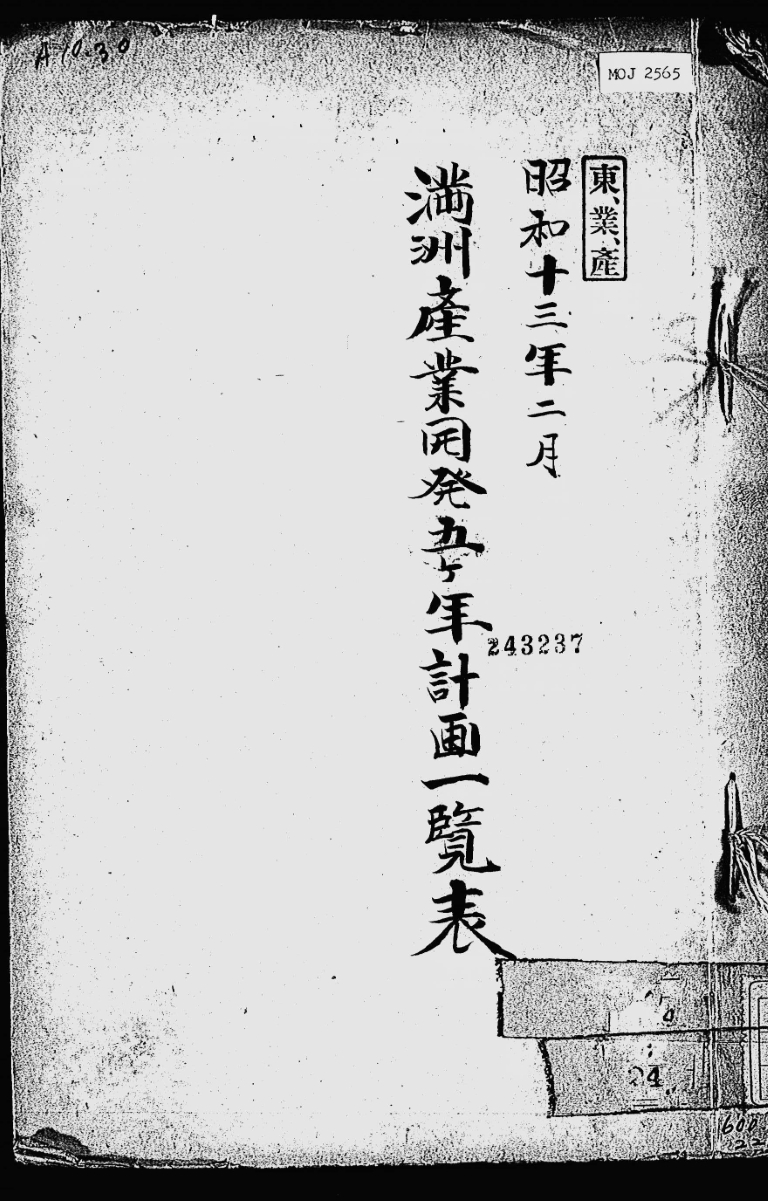 A10-30
MOJ 2565
東、業、產
昭和十三年二月
満洲產業開発五ヶ年計画一覧表
243237
4
24
600
22